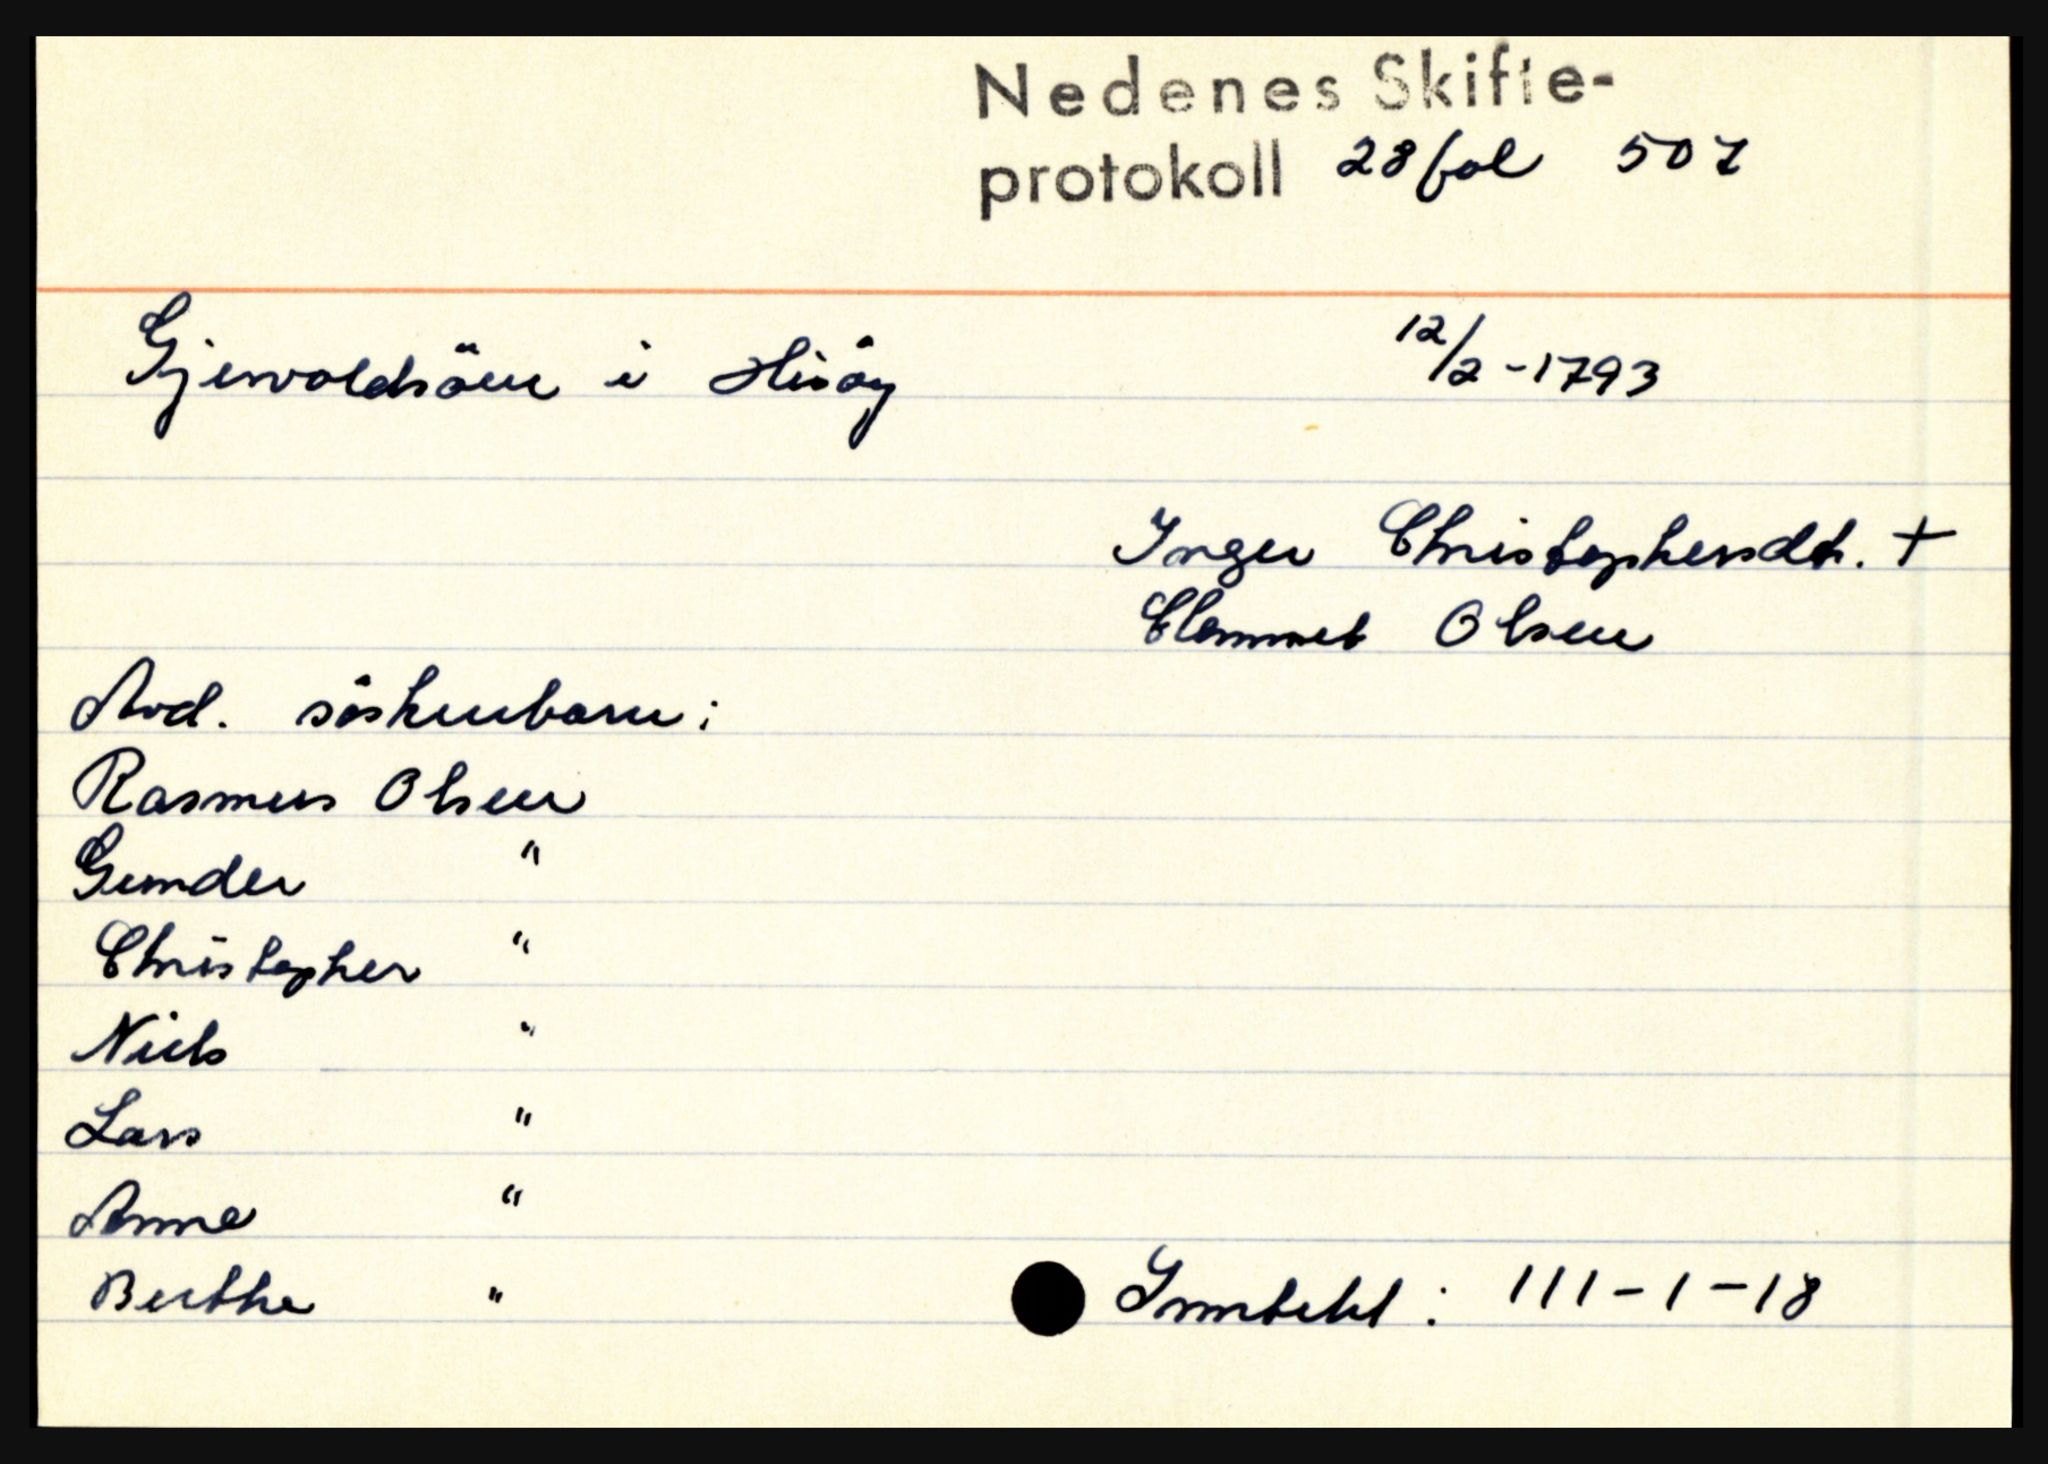 Nedenes Skifte-
protokoll 28 fol 507
Gjervoldsöen i Hisöy 12/2-1793
Inger Christophersdt. +
Clemmet Olsen
Avd. söskenbarn:
Rasmus Olsen
Gunder "
Christopher "
Niels "
Lars "
Anne "
Berthe "
Inntekt: 111-1-18